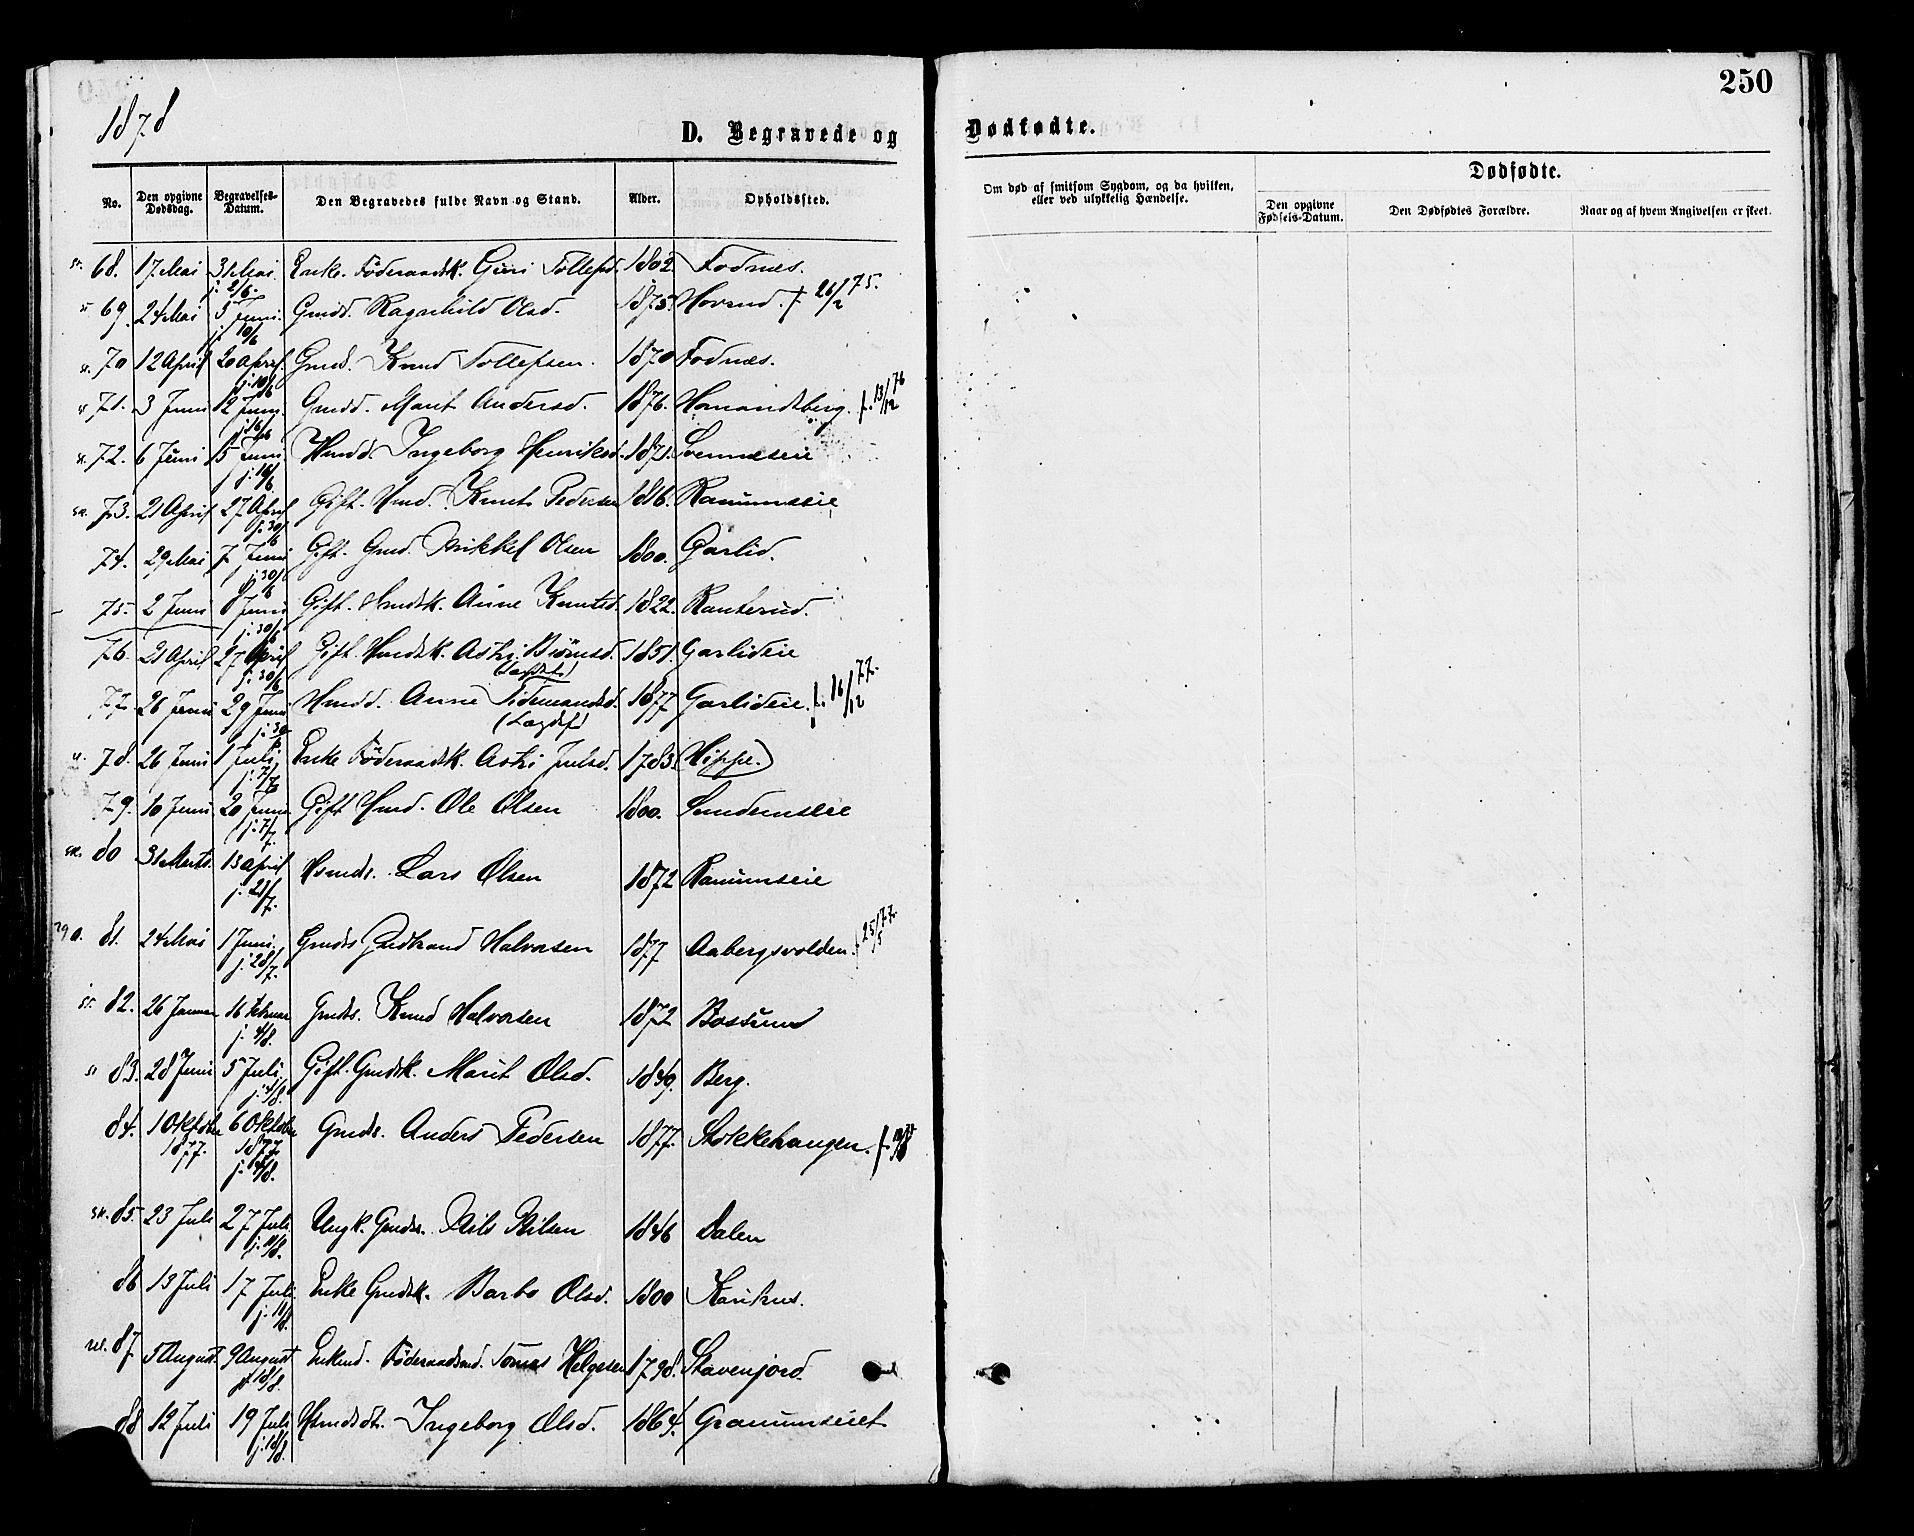 250
1878
D. Begravede og Dødfødte.
No. Den opgivne Dødsdag. Begravelses-Datum. Den Begravedes fulde Navn og Stand. Alder. Opholdssted.
Om død af smitsom Sygdom, og da hvilken, eller ved ulykkelig Hændelse.
Dødfødte.
Den opgivne Fødsels-Datum. Den Dødfødtes Forældre. Naar og af hvem Angivelsen er skeet.
68. 17 Mai 31 Mai j. 2/6. Enke. Føderaadsk. Guri Tollefsd. 1802. Fodnæs.
69. 24 Mai 5 Juni j. 10/6 Gmdd. Ragnhild Olsd. 1875. Hovrud. f. 26/2 75.
70 12 April 20 April. j. 10/6 Gmds. Knud Tollefsen. 1870 Fodnæs.
71. 3 Juni 12 Juni. j. 16/6 Gmdd. Marit Andersd. 1876. Homandsberg. f. 13/12 76
72. 6 Juni 15 Juni j. 16/6 Hmdd. Ingeborg Henriksd. 1871. Svennæseie
73. 21 April 27 April j. 30/6 Gift. Hmd. Knut Pedersen 1816. Ranumseie
74. 29 Mai 7 Juni j. 30/6 Gift. Gmd. Mikkel Olsen 1800. Garlid.
75. 2 Juni 8 Juni j. 30/6 Gift. Hmdsk. Anne Knutsd. 1822. Ranterud.
76. 21 April 27 April j. 30/6 Gift. Hmdsk. Astri Biørnsd. 1851. Garlideie
77. 26 Juni 29 Juni j. 30/6 Hmdd. Anne Tidemandsd. 1877 Garlideie. f. 16/12 77.
78. 26 Juni 1 Juli j. 7/7 Enke Føderaadsk. Astri Juulsd. 1783. Hippe.
79. 10 Juni 20 Juni j. 7/7. Gift Hmd. Ole Olsen 1800. Sundeimseie
80 31 Marts. 13 April j. 21/7. Hsmds. Lars Olsen 1872 Ranumseie
81. 24 Mai 1 Juni. j. 28/7. Gmds Gudbrand Halvorsen 1877 Aabergsvolden. f. 25/5 77.
82. 26 Januar 16 Februar j. 4/8. Gmds. Knud Halvorsen 1872 Bossum
83. 28 Juni 5 Juli. j. 4/8. Gift. Gmdsk. Marit Olsd. 1839. Berg.
84. 1 Oktober 1877. 6 Oktober 1877 j. 4/8. Gmds. Anders Pedersen 1877. Stokkehaugen.
85. 23 Juli 27 Juli j. 11/8. Ungk. Gmds. Nils Nilsen 1846 Dalen
86 13 Juli 17 Juli j. 11/8. Enke Gmdsk. Barbo Olsd. 1800 Karihus.
87 5 August. 9 August 18/8. Enkmd. Føderaadsmd. Tomas Helgesen 1798. Stavenjord.
88 12 Juli 19 Juli j. 18/8. Hmdsdt. Ingeborg Olsd. 1864. Granumseiet